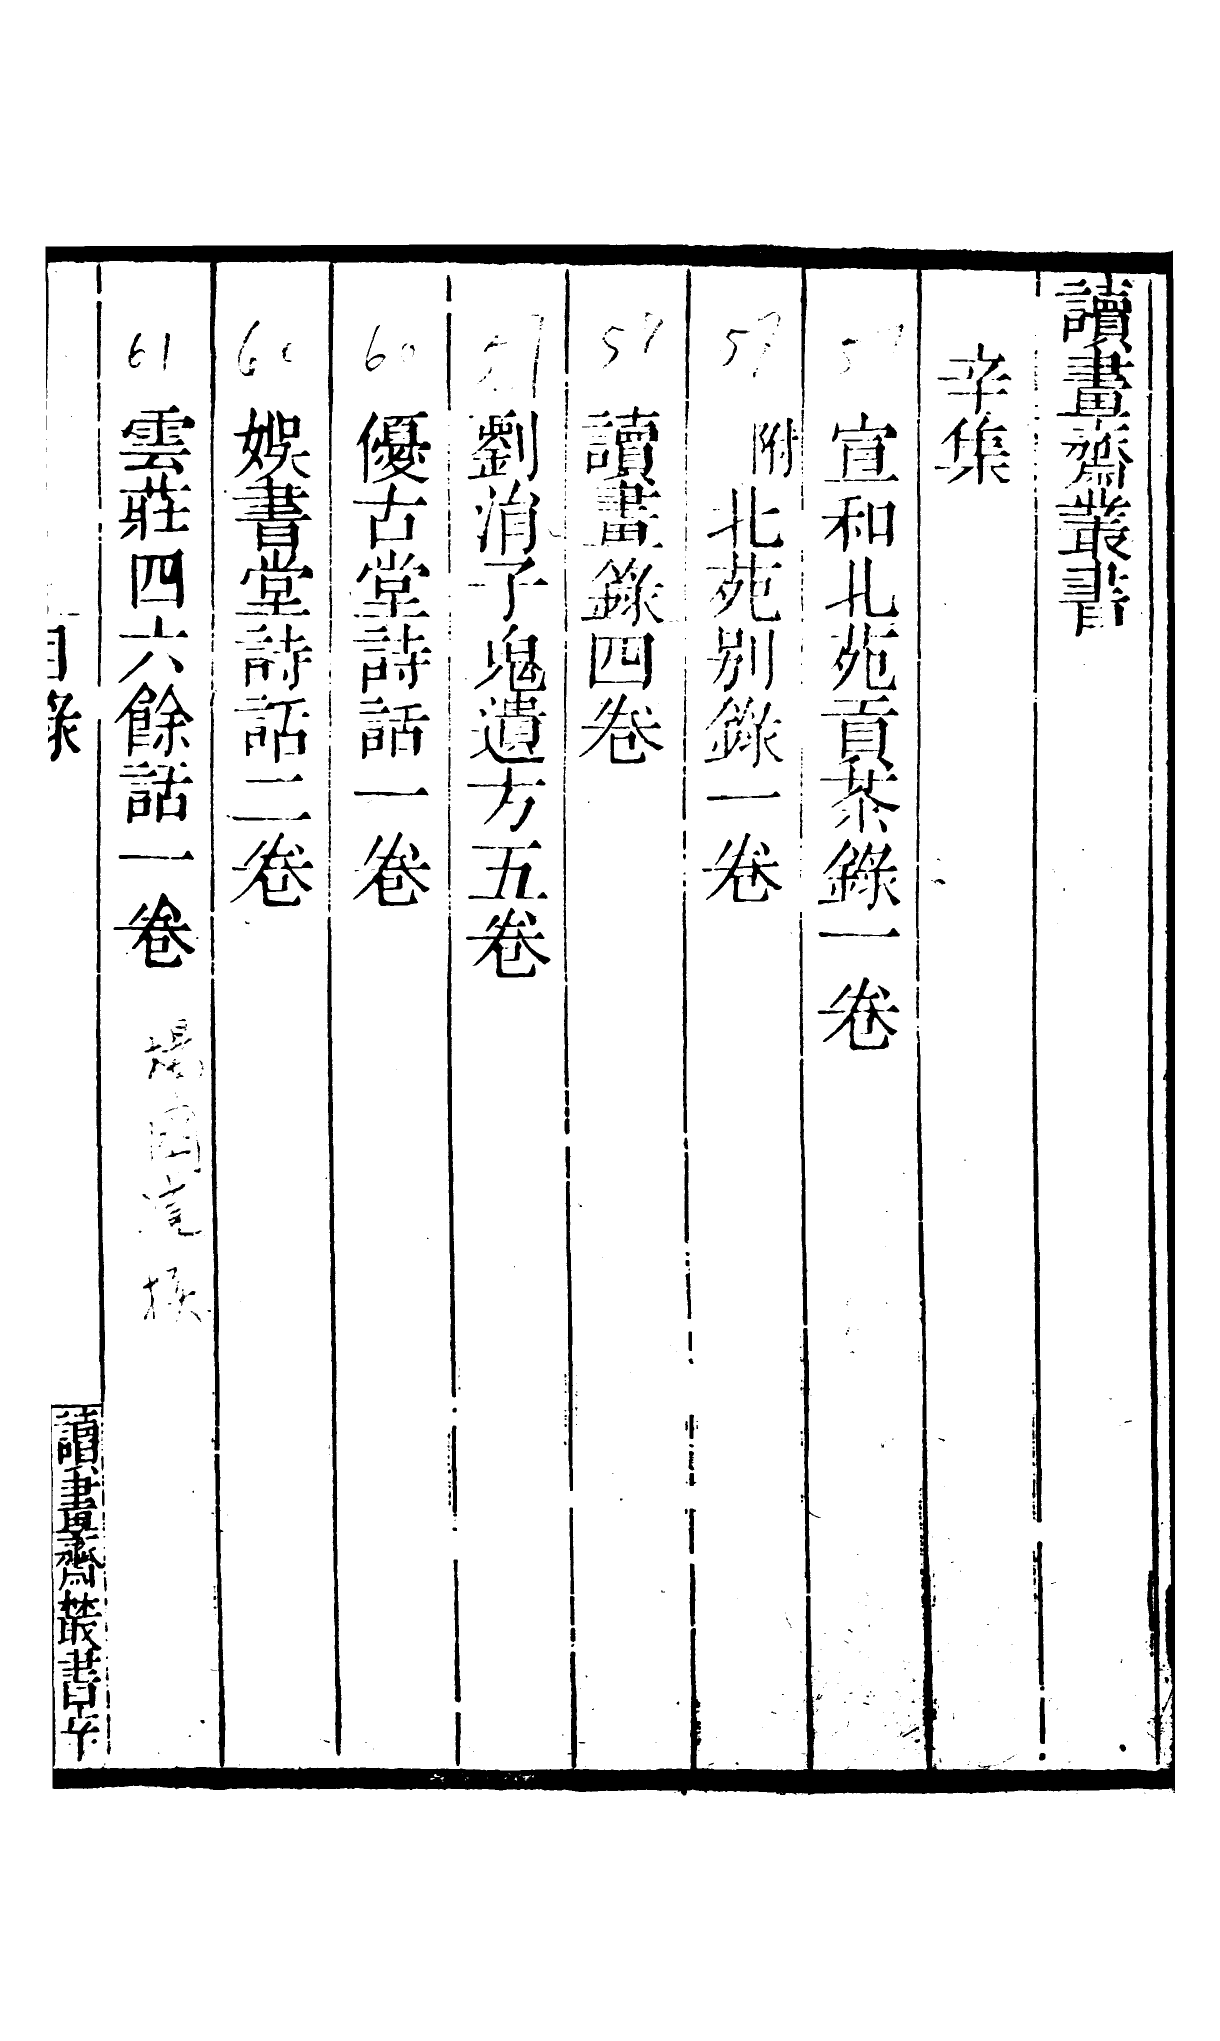 讀畫齋叢書
辛集
宣和北苑貢茶錄一卷
附北苑別錄一卷
57
讀畫錄四卷
57
劉涓子鬼遺方五卷
60
優古堂詩話一卷
60
娛書堂詩話二卷
61
雲莊四六餘話一卷 楊囦道撰
目錄
讀畫齋叢書辛